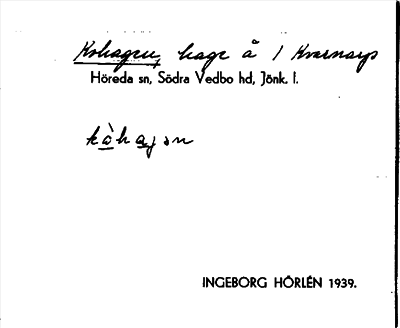 Kohagen, hage å 1 Kvarnarp
Höreda sn, Södra Vedbo hd, Jönk. l.
kòhagən
INGEBORG HÖRLÉN 1939.